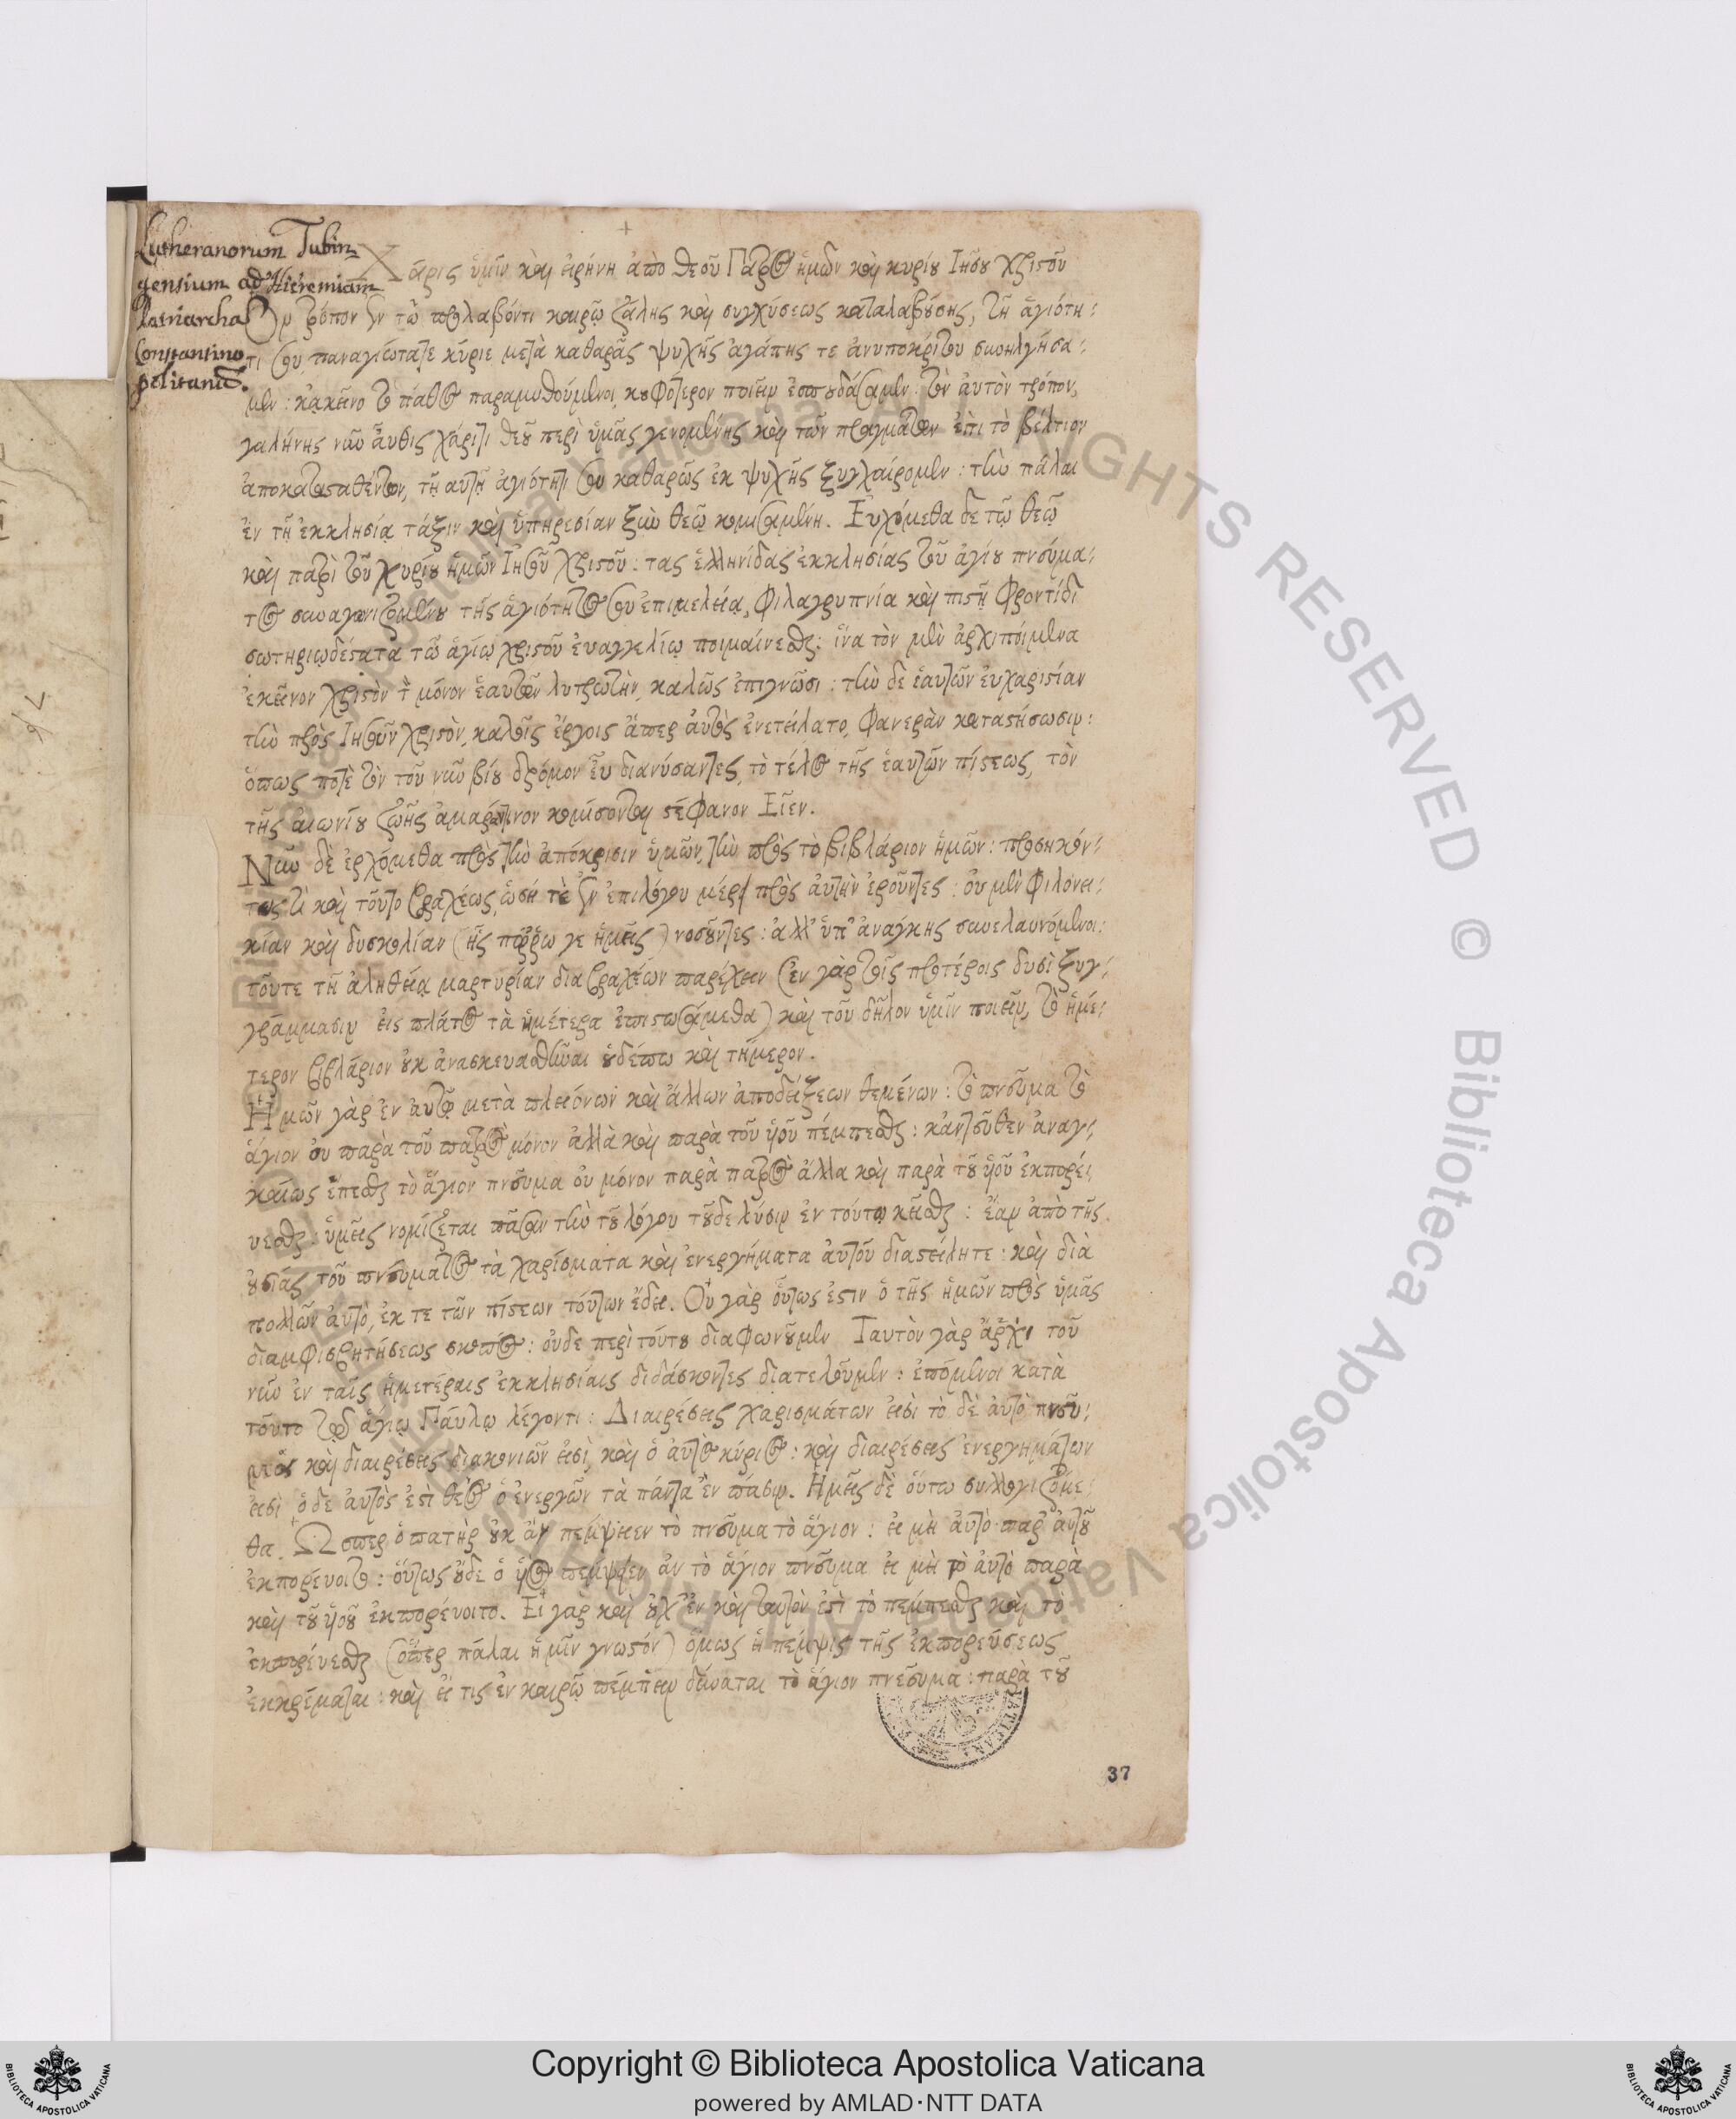 Lutheranorum Tubin-
gensium ad Hieremiam
Patriarcha
Constantino
politanū.
Χάρις ὑμῖν καὶ εἰρήνη ἀπὸ θεοῦ Πατρὸς ἡμῶν καὶ κυρίου Ἰησου Χριστοῦ
Ὃν τρόπον ἐν τῷ προλαβόντι καιρῷ ζάλης καὶ συγχύσεως καταλαβούσης, τῇ ἁγιότη:
τι σου παναγιώτατε κύριε μετὰ καθαρᾶς ψυχῆς ἀγάπης τε ἀνυποκρίτου συνηλγήσα:
μεν: κἀκεῖνο τὸ πάθος παραμυθούμενοι, κουφότερον ποιεῖν ἐσπουδάσαμεν: τὸν αὐτὸν τρόπον,
γαλήνης νῦν αὖθις χάριτι θεοῦ περὶ ὑμᾶς γενομένης καὶ τῶν πραγμάτων ἐπὶ τὸ βέλτιον
ἀποκατασταθέντων, τῇ αὐτῇ ἁγιότητι σου καθαρῶς ἐκ ψυχῆς ξυγχαίρομεν: τὴν πάλαι
ἐν τῇ ἐκκλησίᾳ τάξιν καὶ ὑπηρεσίαν ξὺν θεῷ κομισαμένῃ. Εὐχόμεθα δε τῷ θεῷ
καὶ πατρὶ τοῦ κυρίου ἡμῶν Ἰησοῦ Χριστοῦ: τας ἑλληνίδας ἐκκλησίας τοῦ ἁγίου πνεύμα:
τος συναγωνιζομένου τῆς ἁγιότητος σου ἐπιμελείᾳ, φιλαγρυπνίᾳ καὶ πιστῇ φροντίδι
σωτηριωδέστατα τῷ ἁγίῳ χριστοῦ ἐυαγγελίῳ ποιμαίνεσθαι: ἵνα τὸν μὲν ἀρχιποίμενα
ἐκεῖνον χριστὸν τὸν μόνον ἑαυτῶν λυτρωτὴν, καλῶς ἐπιγνῶσι: τὴν δε ἑαυτῶν ἐυχαριστίαν
τὴν πρὸς Ἰησοῦν Χριστὸν, καλοῖς ἔργοις ἅπερ αὐτὸς ἐνετείλατο, φανερὰν καταστήσωσιν:
ὅπως ποτὲ τὸν τοῦ νῦν βίου δρόμον εὖ διανύσαντες, τὸ τέλος τῆς ἑαυτῶν πίστεως, τὸν
τῆς αἰωνίου ζωῆς ἀμαράντινον κομίσονται στέφανον Εἶεν.
Νῦν δὲ ἐρχόμεθα πρὸς τὴν ἀπόκρισιν ὑμῶν, τὴν πρὸς τὸ βιβλάριον ἡμῶν: προσηκόν:
τως τὶ καὶ τοῦτο βραχέως, ὡσεί τε ἐν ἐπιλόγου μέρει πρὸς αὐτὴν ἐροῦντες: οὐ μὲν φιλονει:
κίαν καὶ δυσκολίαν (ἧς πόῤῥω γε ἡμεῖς) νοσοῦντες: ἀλλ' ὑπ' ἀνάγκης συνελαυνόμενοι:
τοῦτε τῇ ἀληθείᾳ μαρτυρίαν δια βραχέων παρέχειν (ἐν γὰρ τοῖς προτέροις δυσὶ ξυγ:
γράμμασιν εἰς πλάτος τὰ ἡμέτερα ἐπιστωσάμεθα) καὶ τοῦ δῆλον ὑμῖν ποιεῖν, τὸ ἡμέ:
τερον βιβλάριον οὐκ ἀνασκευασθῆναι οὐδέπω καὶ τήμερον.
Ἡμῶν γὰρ ἐν αὐτῷ μετὰ πλειόνων καὶ ἄλλων ἀποδείξεων θεμένων: τὸ πνεῦμα τὸ
ἅγιον οὐ παρὰ τοῦ πατρὸς μόνον ἀλλὰ καὶ παρὰ τοῦ υἱοῦ πέμπεσθαι: κἀντεῦθεν ἀναγ:
καίως ἕπεσθαι τὸ ἅγιον πνεῦμα οὐ μόνον παρὰ πατρὸς ἀλλα καὶ παρὰ τοῦ υἱοῦ ἐκπορέ:
υεσθαι: ὑμεῖς νομίζεται πᾶσαν τὴν τοῦ λόγου τοῦδε λύσιν ἐν τούτῳ κεῖσθαι: ἐὰν ἀπὸ τῆς
οὐσίας τοῦ πνεύματος τὰ χαρίσματα καὶ ἐνεργήματα αὐτοῦ διαστείλητε: καὶ διὰ
πολλῶν αὐτὸ, ἐκ τε τῶν πίστεων τούτων ἔδει. Οὐ γὰρ οὗτος ἐστιν ὁ τῆς ἡμῶν πρὸς ὑμᾶς
διαμφισβητήσεως σκοπὸς: οὐδε περὶ τούτου διαφωνοῦμεν Ταυτὸν γὰρ ἄχρι τοῦ
νῦν ἐν ταῖς ἡμετέραις ἐκκλησίαις διδάσκοντες διατελοῦμεν: ἑπόμενοι κατὰ
τοῦτο τῷ ἁγίῳ Παύλῳ λέγοντι: Διαιρέσεις χαρισμάτων εἰσὶ τὸ δὲ αὐτὸ πνεῦ:
μα καὶ διαιρέσεις διακονιῶν εἰσὶ, καὶ ὁ αὐτὸς κύριος: καὶ διαιρέσεις ἐνεργημάτων
εἰσὶ ὁ δε αὐτὸς ἐστὶ θεὸς ὁ ἐνεργῶν τὰ πάντα ἐν πᾶσιν. Ἡμεῖς δὲ οὕτω συλλογιζόμε:
θα. Ὥσπερ ὁ πατὴρ οὐκ ἂν πέμψειεν τὸ πνεῦμα τὸ ἅγιον: εἰ μὴ αὐτὸ παρ' αὐτοῦ
ἐκπορέυοιτο: οὕτως οὐδε ὁ υἱὸς πέμψειεν ἀν τὸ ἅγιον πνεῦμα εἰ μὴ τὸ αὐτὸ παρὰ
καὶ τοῦ υἱοῦ ἐκπορέυοιτο. Εἰ γὰρ καὶ οὐχ' ἓν καὶ ταυτὸν ἐστὶ τὸ πέμπεσθαι καὶ τὸ
ἐκπορέυεσθαι (ὅπερ πάλαι ἡμῖν γνωστόν) ὅμως ἡ πέμψις τῆς ἐκπορεύσεως
ἐκκρέμαται: καὶ εἴ τις ἐν καιρῷ πέμπειν δύναται τὸ ἅγιον πνεῦμα: παρὰ τοῦ
37
© Biblioteca Apostolica Vaticana ALL RIGHTS RESERVED
Copyright © Biblioteca Apostolica Vaticana
powered by AMLAD·NTT DATA
BIBLIOTECA APOSTOLICA VATICANA
BIBLIOTECA APOSTOLICA VATICANA